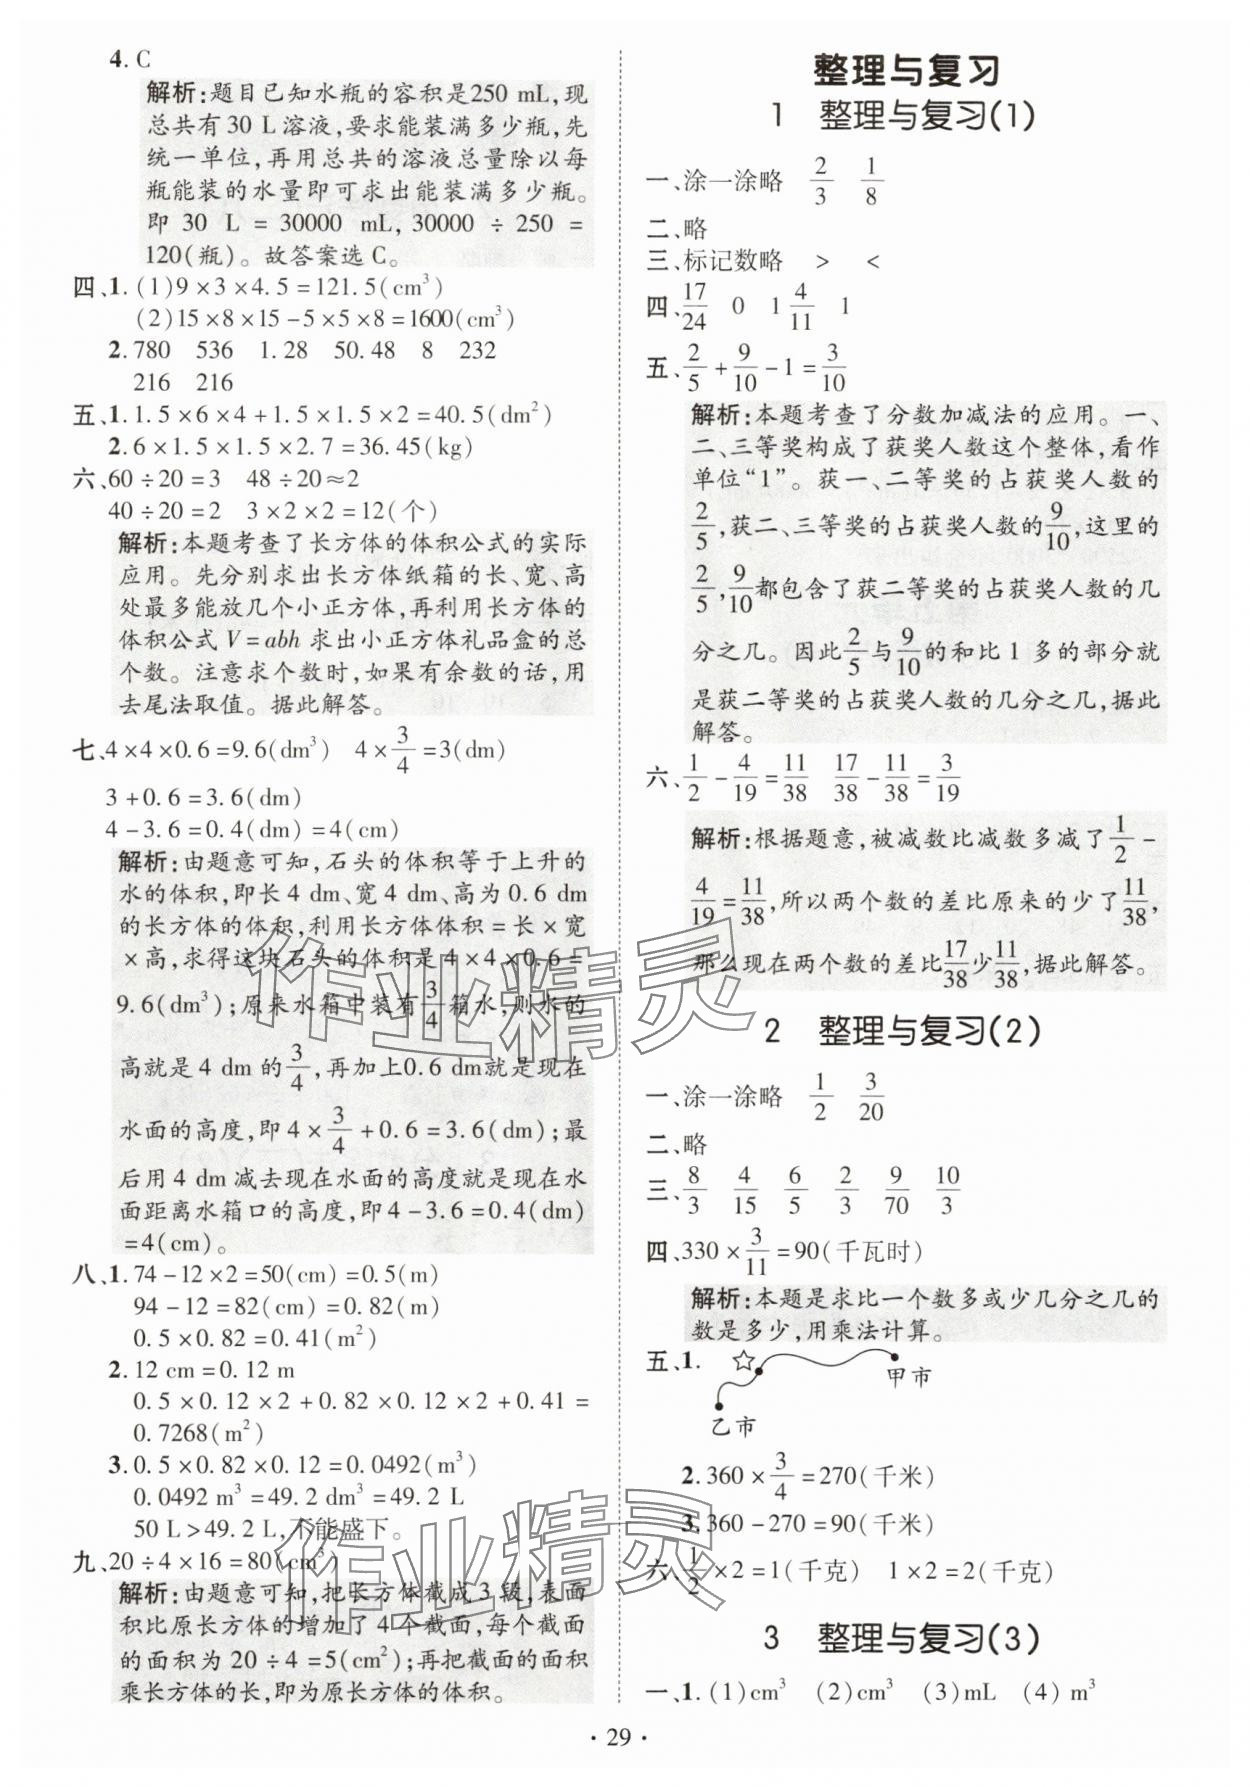 4. C
解析:题目已知水瓶的容积是250 mL,现
总共有 30 L 溶液,要求能装满多少瓶,先
统一单位,再用总共的溶液总量除以每
瓶能装的水量即可求出能装满多少瓶。
即 30 L = 30000 mL, 30000 ÷ 250 =
120(瓶)。故答案选 C。
四、1. (1) 9×3×4.5=121.5(cm³)
(2) 15×8×15-5×5×8=1600(cm³)
2. 780 536 1.28 50.48 8 232
216 216
五、1. 1.5×6×4+1.5×1.5×2=40.5(dm²)
2. 6×1.5×1.5×2.7=36.45(kg)
六、60÷20=3 48÷20≈2
40÷20=2 3×2×2=12(个)
解析:本题考查了长方体的体积公式的实际
应用。先分别求出长方体纸箱的长、宽、高
处最多能放几个小正方体,再利用长方体的
体积公式 V=abh 求出小正方体礼品盒的总
个数。注意求个数时,如果有余数的话,用
去尾法取值。据此解答。
七、4×4×0.6=9.6(dm³) 4×3/4=3(dm)
3+0.6=3.6(dm)
4-3.6=0.4(dm)=4(cm)
解析:由题意可知,石头的体积等于上升的
水的体积,即长 4 dm、宽 4 dm、高为 0.6 dm
的长方体的体积,利用长方体体积=长×宽
×高,求得这块石头的体积是 4×4×0.6=
9.6(dm³);原来水箱中装有3/4箱水,则水的
高就是 4 dm 的3/4,再加上0.6 dm就是现在
水面的高度,即 4×3/4+0.6=3.6(dm);最
后用 4 dm 减去现在水面的高度就是现在水
面距离水箱口的高度,即4-3.6=0.4(dm)
=4(cm)。
八、1. 74-12×2=50(cm)=0.5(m)
94-12=82(cm)=0.82(m)
0.5×0.82=0.41(m²)
2. 12 cm=0.12 m
0.5×0.12×2+0.82×0.12×2+0.41=
0.7268(m²)
3. 0.5×0.82×0.12=0.0492(m³)
0.0492 m³=49.2 dm³=49.2 L
50 L>49.2 L,不能盛下。
九、20÷4×16=80(cm³)
解析:由题意可知,把长方体截成 3 段,表面
积比原长方体的增加了 4 个截面,每个截面
的面积为 20÷4=5(cm²);再把截面的面积
乘长方体的长,即为原长方体的体积。
整理与复习
1 整理与复习(1)
一、涂一涂略 2/3 1/8
二、略
三、标记数略 > <
四、17/24 0 1 4/11 1
五、2/5+9/10-1=3/10
解析:本题考查了分数加减法的应用。一、
二、三等奖构成了获奖人数这个整体,看作
单位“1”。获一、二等奖的占获奖人数的
2/5,获二、三等奖的占获奖人数的9/10,这里的
2/5,9/10都包含了获二等奖的占获奖人数的几
分之几。因此2/5与9/10的和比 1 多的部分就
是获二等奖的占获奖人数的几分之几,据此
解答。
六、1/2-4/19=11/38 17/38-11/38=3/19
解析:根据题意,被减数比减数多减了1/2-
4/19=11/38,所以两个数的差比原来的少了11/38,
那么现在两个数的差比17/38少11/38,据此解答。
2 整理与复习(2)
一、涂一涂略 1/2 3/20
二、略
三、8/3 4/15 6/5 2/3 9/70 10/3
四、330×3/11=90(千瓦时)
解析:本题是求比一个数多或少几分之几的
数是多少,用乘法计算。
五、1.
甲市
乙市
2. 360×3/4=270(千米)
3. 360-270=90(千米)
六、1/2×2=1(千克) 1×2=2(千克)
3 整理与复习(3)
一、1. (1)cm³ (2)cm³ (3)mL (4) m³
· 29 ·
作业精灵
作业精灵